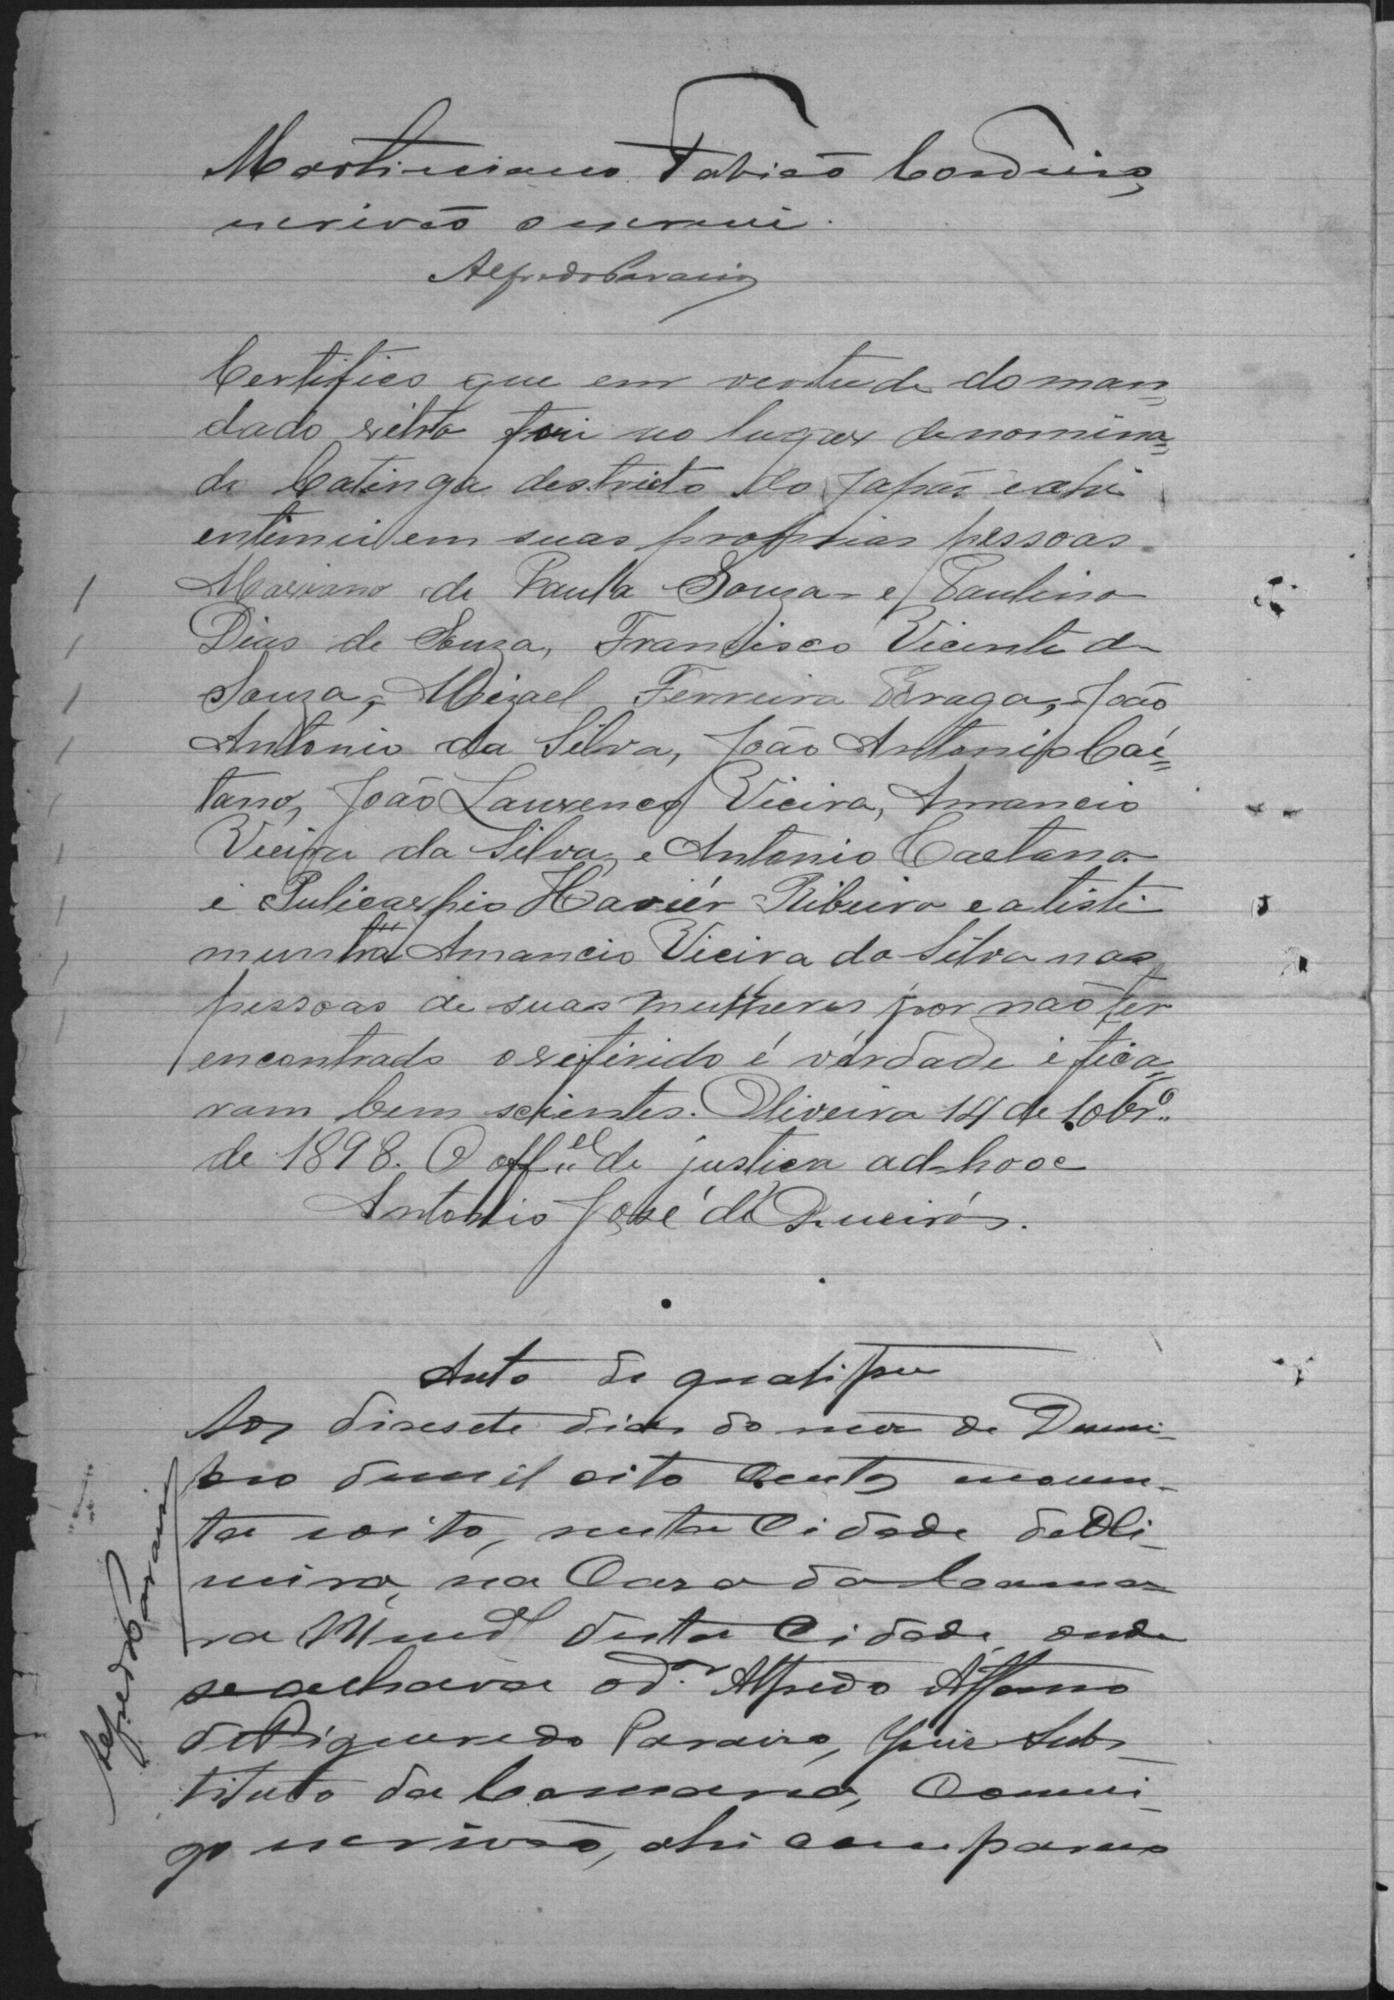 Martiniano Fabião Cordeiro,
escrivão o escrevi.
Alfredo Paraiso
Certifico que em vertude do man=
dado retro foi no lugar denomina=
do Catinga destricto do Japão e ahi
entimei em suas proprias pessoas
Mariano de Paula Souza e Paulino
Dias de Souza, Francisco Vicente de
Souza, Mizael Ferreira Braga, João
Antonio da Silva, João Antonio Cai=
tano, João Laurenço Vieira, Amancio
Vieira da Silva, e Antonio Caetano
e Pulicarpio Xaviér Ribeiro e a tisti
munha Amancio Vieira da Silva nas
pessoas de suas mulheres por não ter
encontrado o referido é vérdade i fica=
ram bem scientes. Oliveira 14 de 10br.º
de 1898. O off.el de justiça ad-hooc
Antonio José de Queirós.
Auto de qualifi
Aos desesete dias do mes de Desem-
bro de mil oito centos noven-
ta e oito, nesta Cidade de Oli-
veira, na Casa da Cama-
ra Mun.al desta Cidade, onde
se achava o d.or Alfredo Affonso
de Figueredo Paraiso, Juiz Subs-
tituto da Comarca, Comi-
go escrivão, ahi compareceo
Alfredo Paraiso